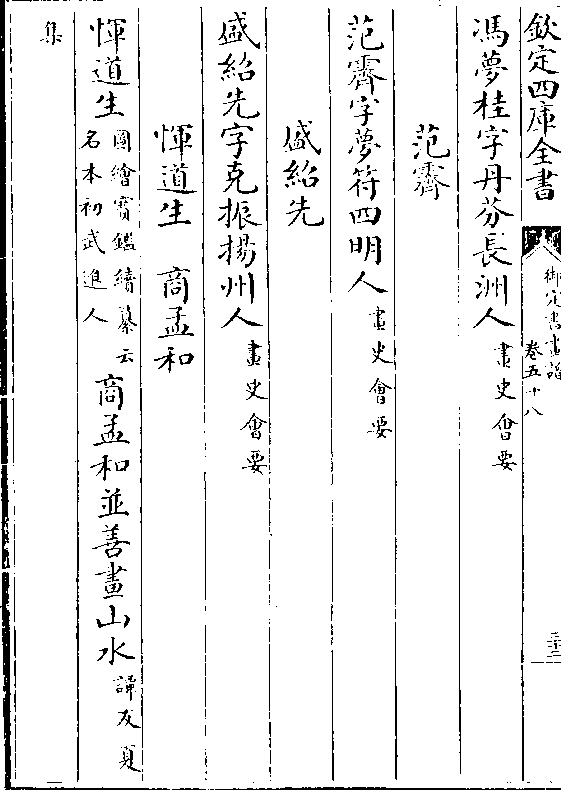 欽定四庫全書
御定書畫譜
卷五十八
三十二
馮夢桂字丹芬長洲人畫史會要
范霽
范霽字夢符四明人畫史會要
盛紹先
盛紹先字克振揚州人畫史會要
惲道生 商孟和
惲道生圖繪寶鑑續纂云名本初武進人商孟和並善畫山水譚友夏
集